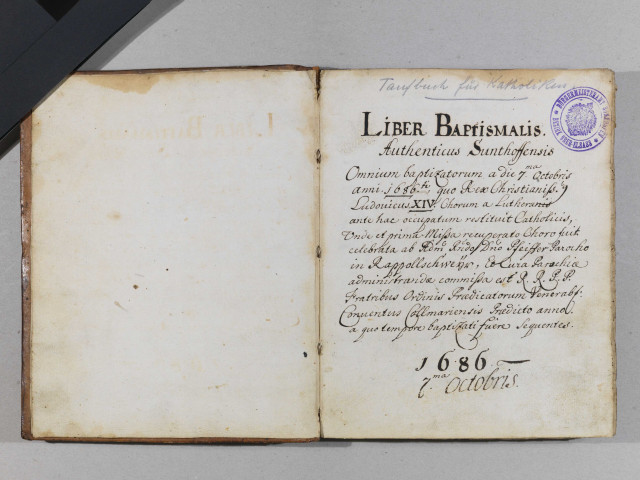 Taufbuch für Katholiken
LIBER BAPTISMALIS.
Authenticus Sunthoffensis
Omnium baptizatorum a die 7.ma Octobris
anni 1686.ti quo Rex Christianiss.9
Ludovicus XIV. Chorum a Lutheranis
ante hac occupatum restituit Catholicis,
Unde et prima Missa recuperato Choro fuit
celebrata ab Rdm̄ Rndo Dn̄o Pfeiffer Parocho
in Rappollschweyr, Et Cura Parochiæ
administrandæ commissa est R. R. P. P.
Fratribus Ordinis Prædicatorum Venerabs:
Conventus Collmariensis Prædicto anno
a quo tempore baptizati fuêre sequentes.
1686.
7.ma Octobris.